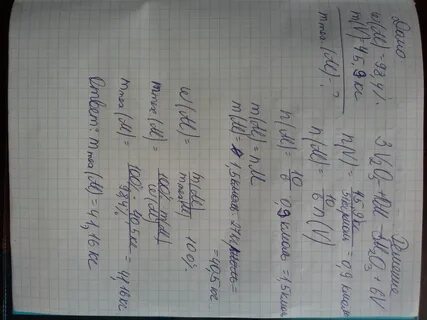 Дано
w(Al) = 98,4%
m(V) = 45,9 кг
m тех (Al) - ?
Решение
3V₂O₅ + 10Al = 5Al₂O₃ + 6V
n(V) = 45,9 кг / 51 кг/кмоль = 0,9 кмоль
n(Al) = 10/6 n(V)
n(Al) = 10/6 · 0,9 кмоль = 1,5 кмоль
m(Al) = n M
m(Al) = 1,5 кмоль · 27 кг/кмоль =
= 40,5 кг
w(Al) = m(Al) / m тех (Al) · 100%
m тех (Al) = 100% · m(Al) / w(Al)
m тех (Al) = 100% · 40,5 кг / 98,4% = 41,16 кг
Ответ: m тех (Al) = 41,16 кг